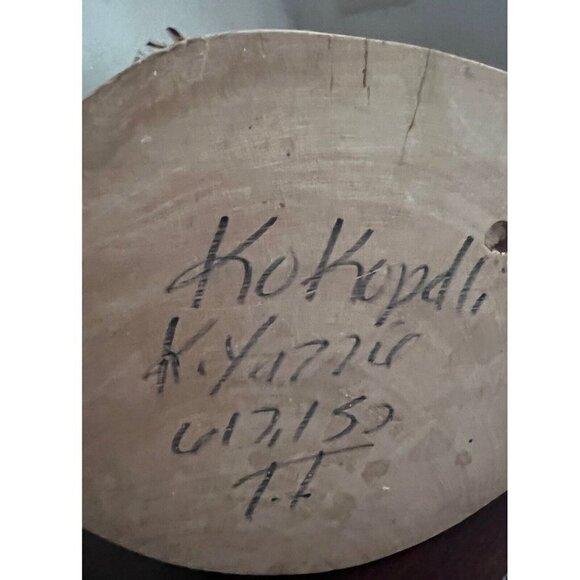 Kokopdli
K. Yazzie
617,157
T.T